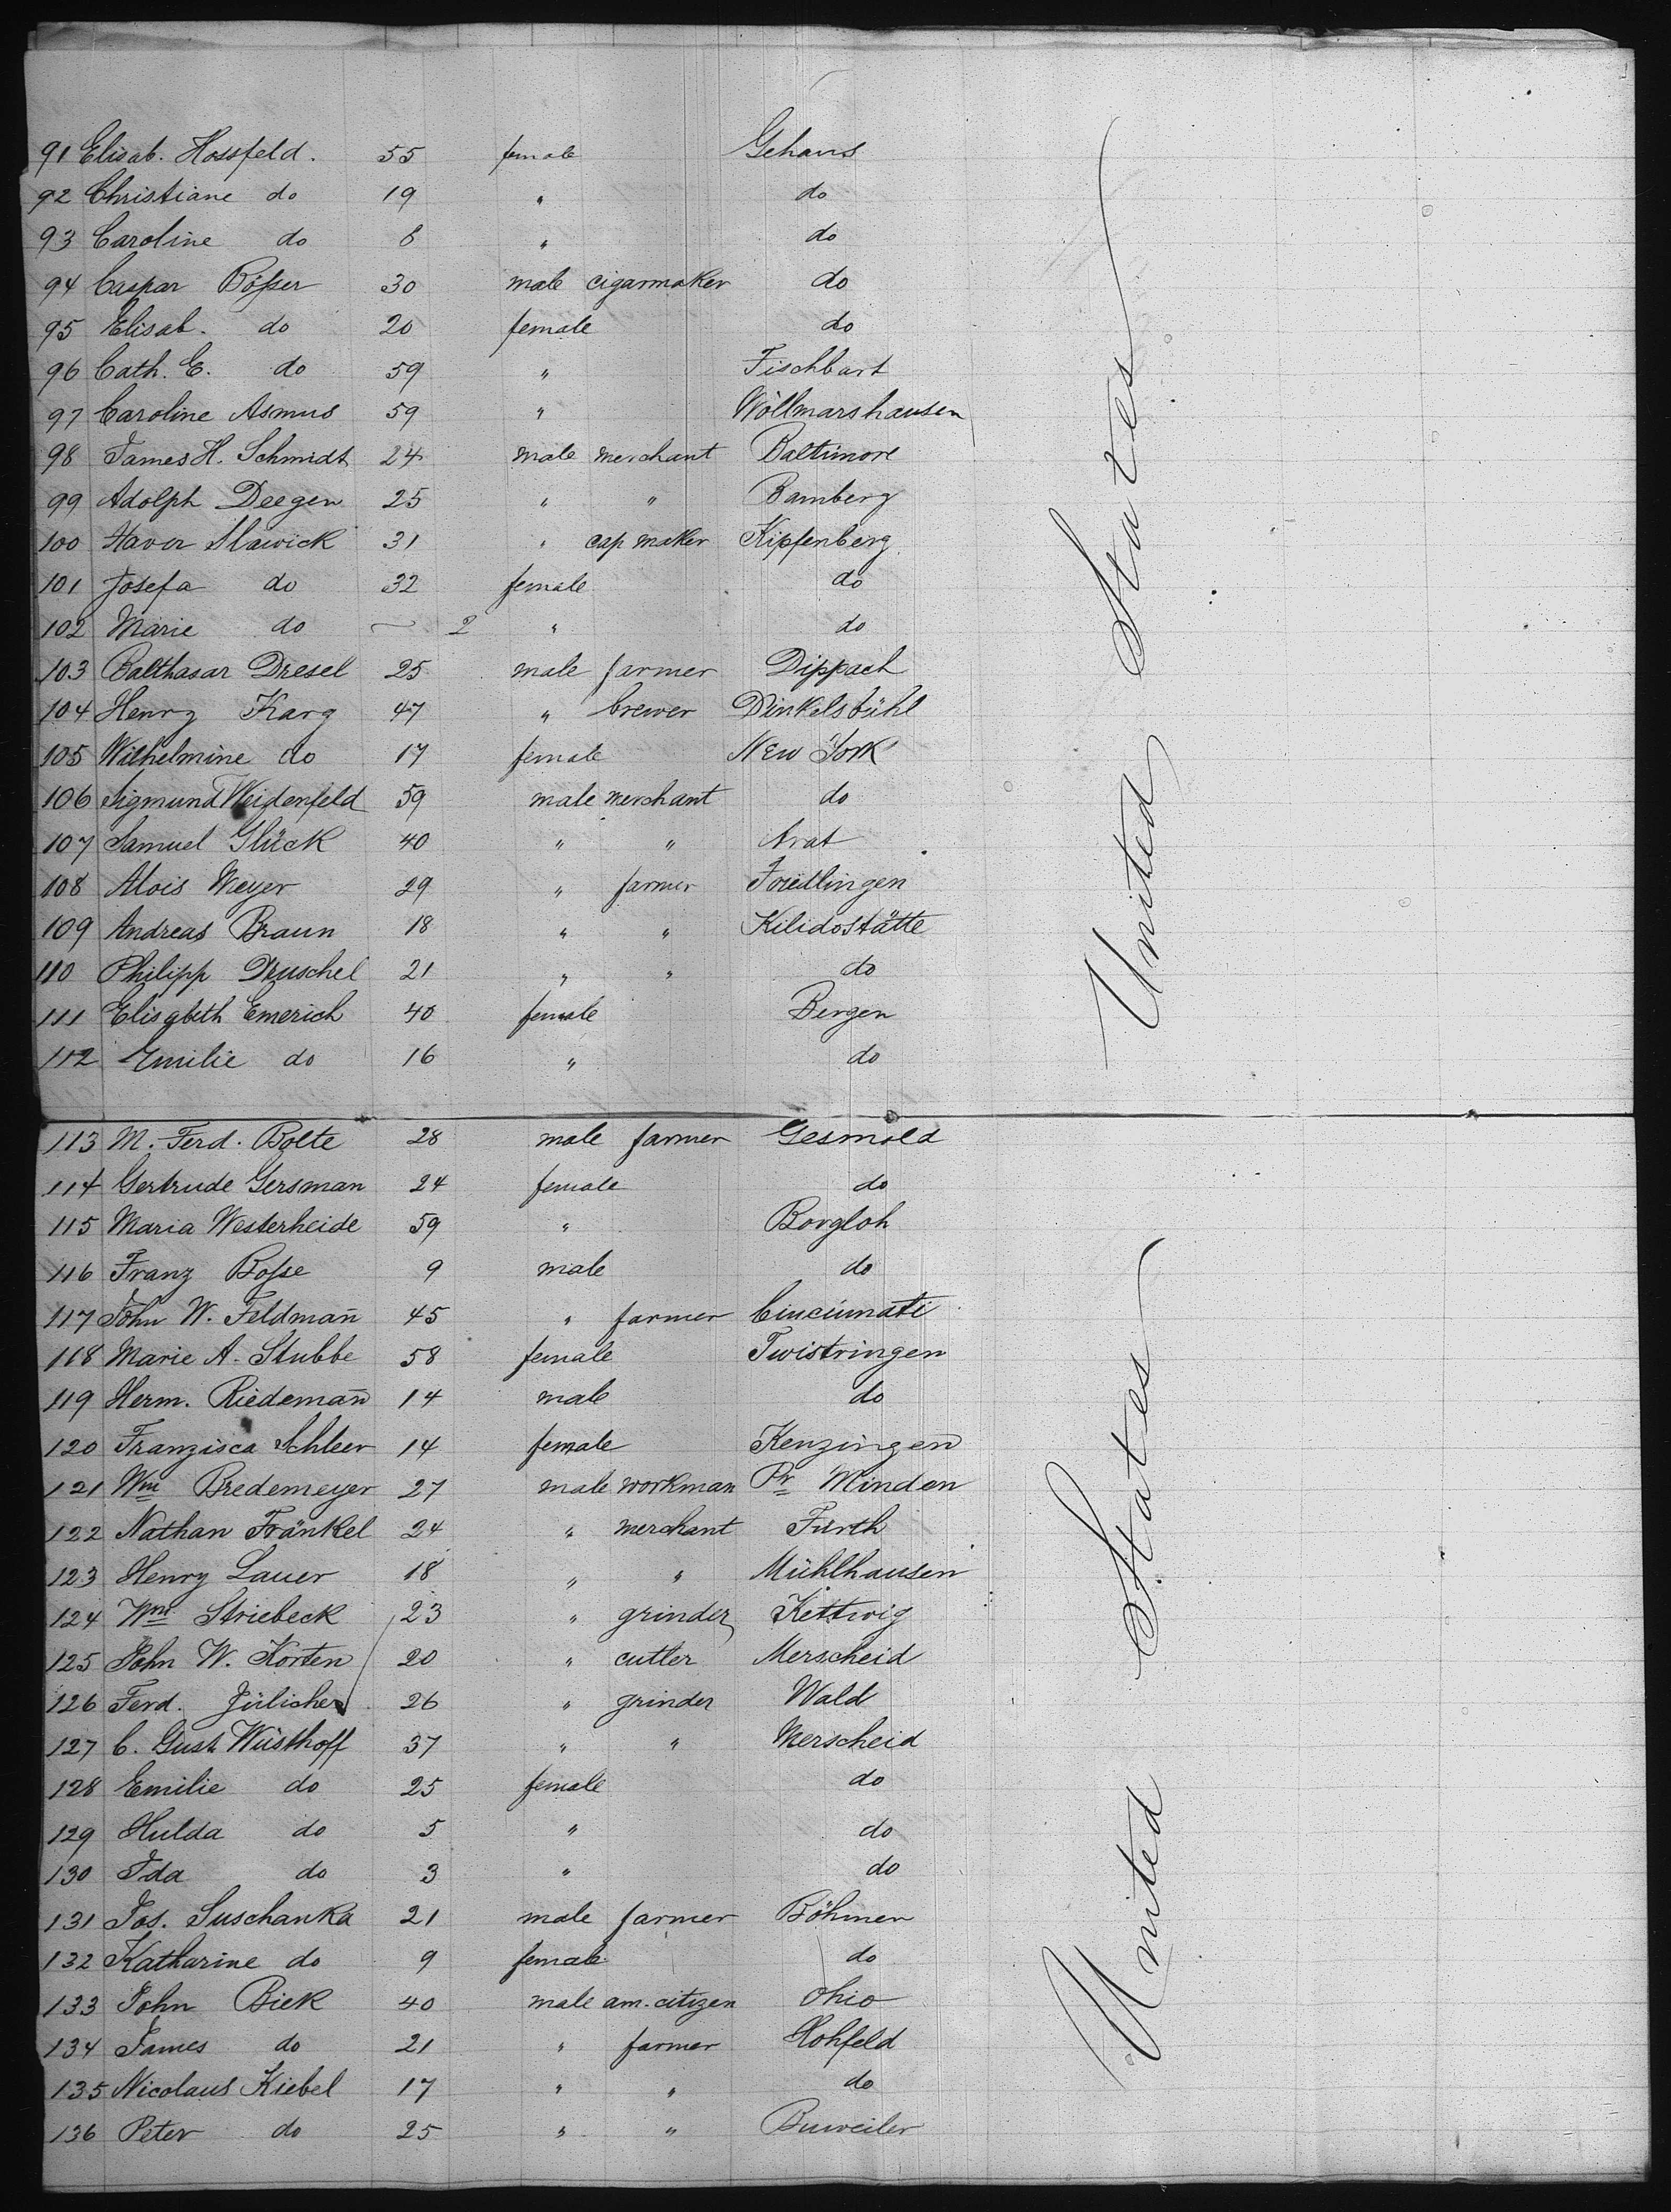 91 Elisab. Hossfeld. 55 female Gehaus
92 Christiane do 19 " do
93 Caroline do 8 " do
94 Caspar Bößer 30 male cigarmaker do
95 Elisab. do 20 female do
96 Cath. E. do 59 " Fischbart
97 Caroline Asmus 59 " Wöllmarshausen
98 James H. Schmidt 24 male merchant Baltimore
99 Adolph Deegen 25 " " Bamberg
100 Xaver Slawick 31 " cap maker Kipfenberg
101 Josefa do 32 female do
102 Marie do ~ 2 " do
103 Balthasar Dresel 25 male farmer Dippach
104 Henry Karg 47 " brewer Dinkelsbühl
105 Wilhelmine do 17 female New York
106 Sigmund Weidenfeld 59 male merchant do
107 Samuel Glück 40 " " Arat
108 Alois Meyer 29 " farmer Friedlingen
109 Andreas Braun 18 " " Kilidostätte
110 Philipp Druschel 21 " " do
111 Elisabeth Emerich 40 female Bergen
112 Emilie do 16 " do
United States
113 M. Ferd. Bolte 28 male farmer Gesmold
114 Gertrude Gersman 24 female do
115 Maria Westerheide 59 " Borgloh
116 Franz Boße 9 male do
117 John W. Feldman̄ 45 " farmer Cincinnati
118 Marie A. Stubbe 58 female Twistringen
119 Herm. Riedeman̄ 14 male do
120 Franzisca Schleer 14 female Kenzingen
121 Wm Bredemeyer 27 male workman Pr Minden
122 Nathan Fränkel 24 " merchant Fürth
123 Henry Lauer 18 " " Mühlhausen
124 Wm Striebeck 23 " grinder Kettwig
125 John W. Korten 20 " cutler Merscheid
126 Ferd. Jülicher 26 " grinder Wald
127 C. Gust. Wüsthoff 37 " " Merscheid
128 Emilie do 25 female do
129 Hulda do 5 " do
130 Ida do 3 " do
131 Jos. Suschanka 21 male farmer Böhmen
132 Katharine do 9 female do
133 John Bick 40 male am. citizen Ohio
134 James do 21 " farmer Hohfeld
135 Nicolaus Kiebel 17 " " do
136 Peter do 25 " " Buweiler
United States